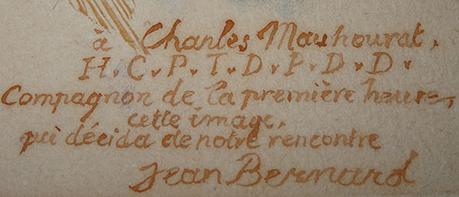 à Charles Mauhourat,
H.C.P.T.D.P.D.D.
Compagnon de la première heure,
cette image,
qui décida de notre rencontre
Jean Bernard